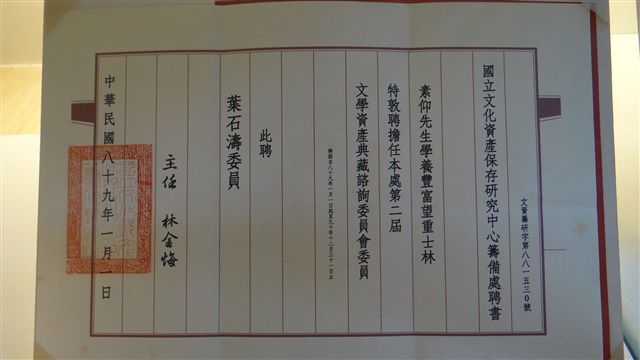 國立文化資產保存研究中心籌備處聘書
文資籌研字第八八一五三0號
素仰先生學養豐富望重士林
特敦聘擔任本處第二屆
文學資產典藏諮詢委員會委員
聘期自八十九年一月一日起至九十年十二月三十一日止
此聘
葉石濤委員
主任 林金悔
中華民國八十九年一月一日